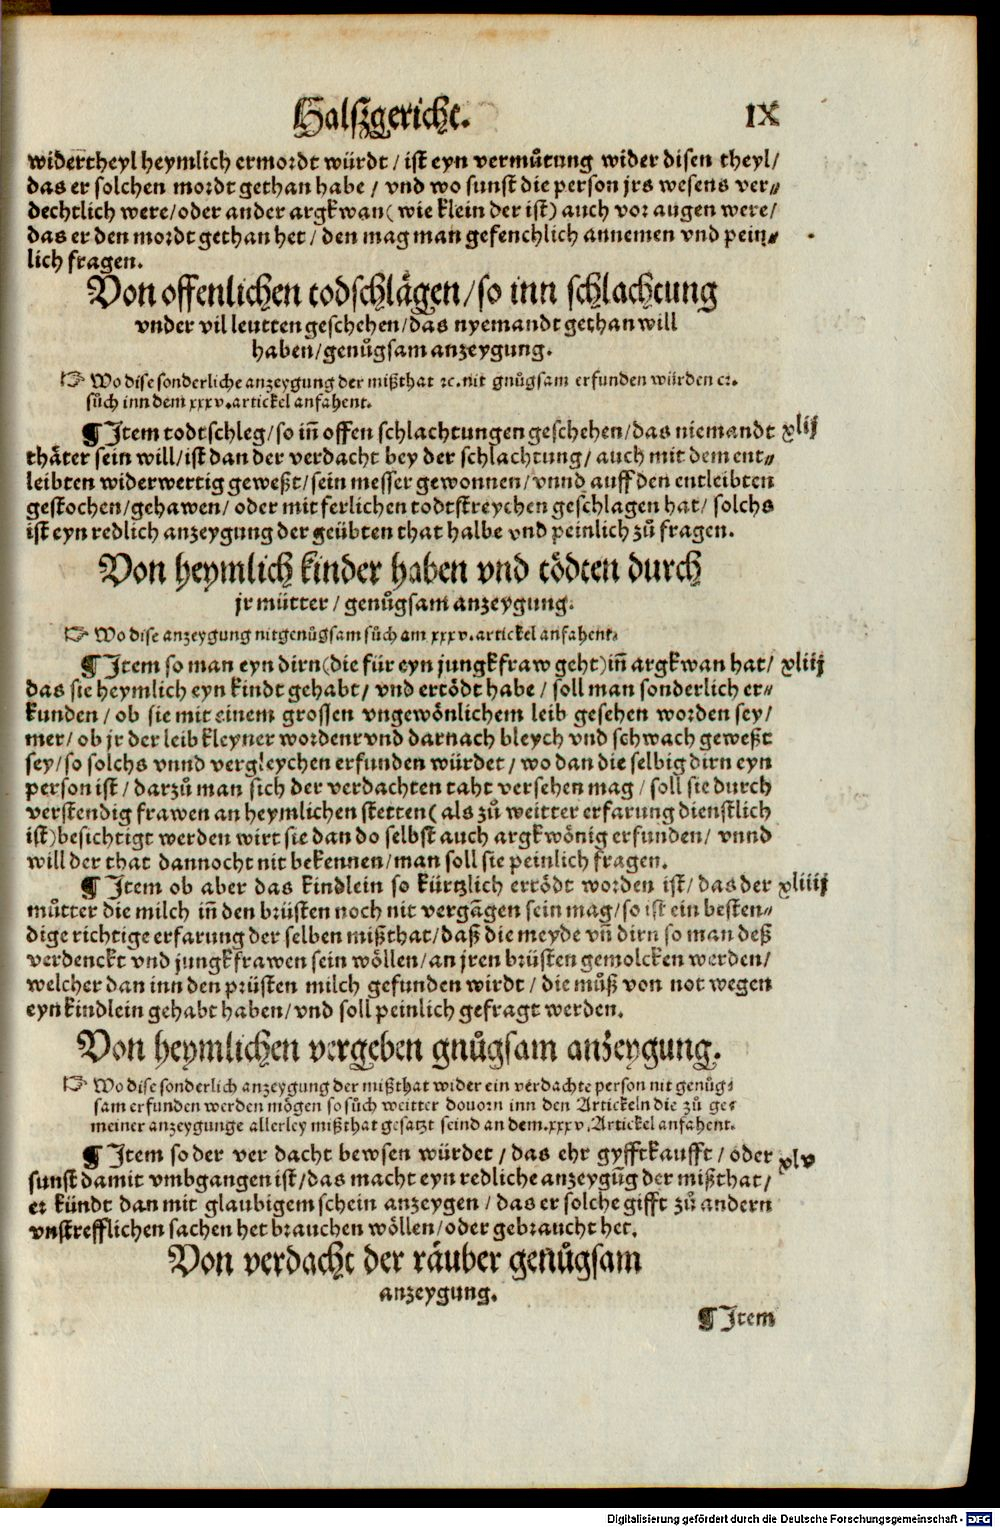 Halßgericht. IX
widertheyl heymlich ermordt würdt / ist eyn vermůtung wider disen theyl /
das er solchen mordt gethan habe / vnd wo sunst die person jrs wesens ver⸗
dechtlich were / oder ander argkwan ( wie klein der ist ) auch vor augen were /
das er den mordt gethan het / den mag man gefenchlich annemen vnd pein⸗
lich fragen.
Von offenlichen todschlägen / so inn schlachtung
vnder vil leutten geschehen / das nyemandt gethan will
haben / genůgsam anzeygung.
☞ Wo dise sonderliche anzeygung der mißthat ꝛc. nit gnůgsam erfunden würden er.
sůch inn dem xxxv. artickel anfahent.
¶ Item todtschleg / so iñ offen schlachtungen geschehen / das niemandt xlij
thäter sein will / ist dan der verdacht bey der schlachtung / auch mit dem ent⸗
leibten widerwertig geweßt / sein messer gewonnen / vnnd auff den entleibten
gestochen / gehawen / oder mit ferlichen todtstreychen geschlagen hat / solchs
ist eyn redlich anzeygung der geübten that halbe vnd peinlich zů fragen.
Von heymlich kinder haben vnd tödten durch
jr mütter / genůgsam anzeygung.
☞ Wo dise anzeygung nit genůgsam sůch am xxxv. artickel anfahent.
¶ Item so man eyn dirn ( die für eyn jungkfraw geht ) iñ argkwan hat / xliij
das sie heymlich eyn kindt gehabt / vnd ertödt habe / soll man sonderlich er⸗
kunden / ob sie mit einem grossen vngewönlichem leib gesehen worden sey /
mer / ob jr der leib kleyner wordenr vnd darnach bleych vnd schwach geweßt
sey / so solchs vnnd vergleychen erfunden würdet / wo dan die selbig dirn eyn
person ist / darzů man sich der verdachten taht versehen mag / soll sie durch
verstendig frawen an heymlichen stetten ( als zů weitter erfarung dienstlich
ist ) besichtigt werden wirt sie dan do selbst auch argkwönig erfunden / vnnd
will der that dannocht nit bekennen / man soll sie peinlich fragen.
¶ Item ob aber das kindlein so kürtzlich ertödt worden ist / das der xliiij
můtter die milch iñ den brüsten noch nit vergãgen sein mag / so ist ein besten⸗
dige richtige erfarung der selben mißthat / daß die meyde vñ dirn so man deß
verdenckt vnd jungkfrawen sein wöllen / an jren brüsten gemolcken werden /
welcher dan inn den prüsten milch gefunden wirdt / die můß von not wegen
eyn kindlein gehabt haben / vnd soll peinlich gefragt werden.
Von heymlichen vergeben gnůgsam anzeygung.
☞ Wo dise sonderlich anzeygung der mißthat wider ein verdachte person nit genůg⸗
sam erfunden werden mögen so sůch weitter dovorn inn den Artickeln die zů ge⸗
meiner anzeygunge allerley mißthat gesatzt seind an dem .xxxv. Artickel anfahent.
¶ Item so der ver dacht bewsen würdet / das ehr gyfft kaufft / oder xlv
sunst damit vmbgangen ist / das macht eyn redliche anzeygũg der mißthat /
er kündt dan mit glaubigem schein anzeygen / das er solche gifft zů andern
vnstrefflichen sachen het brauchen wöllen / oder gebraucht het.
Von verdacht der räuber genůgsam
anzeygung.
¶ Item
Digitalisierung gefördert durch die Deutsche Forschungsgemeinschaft - DFG